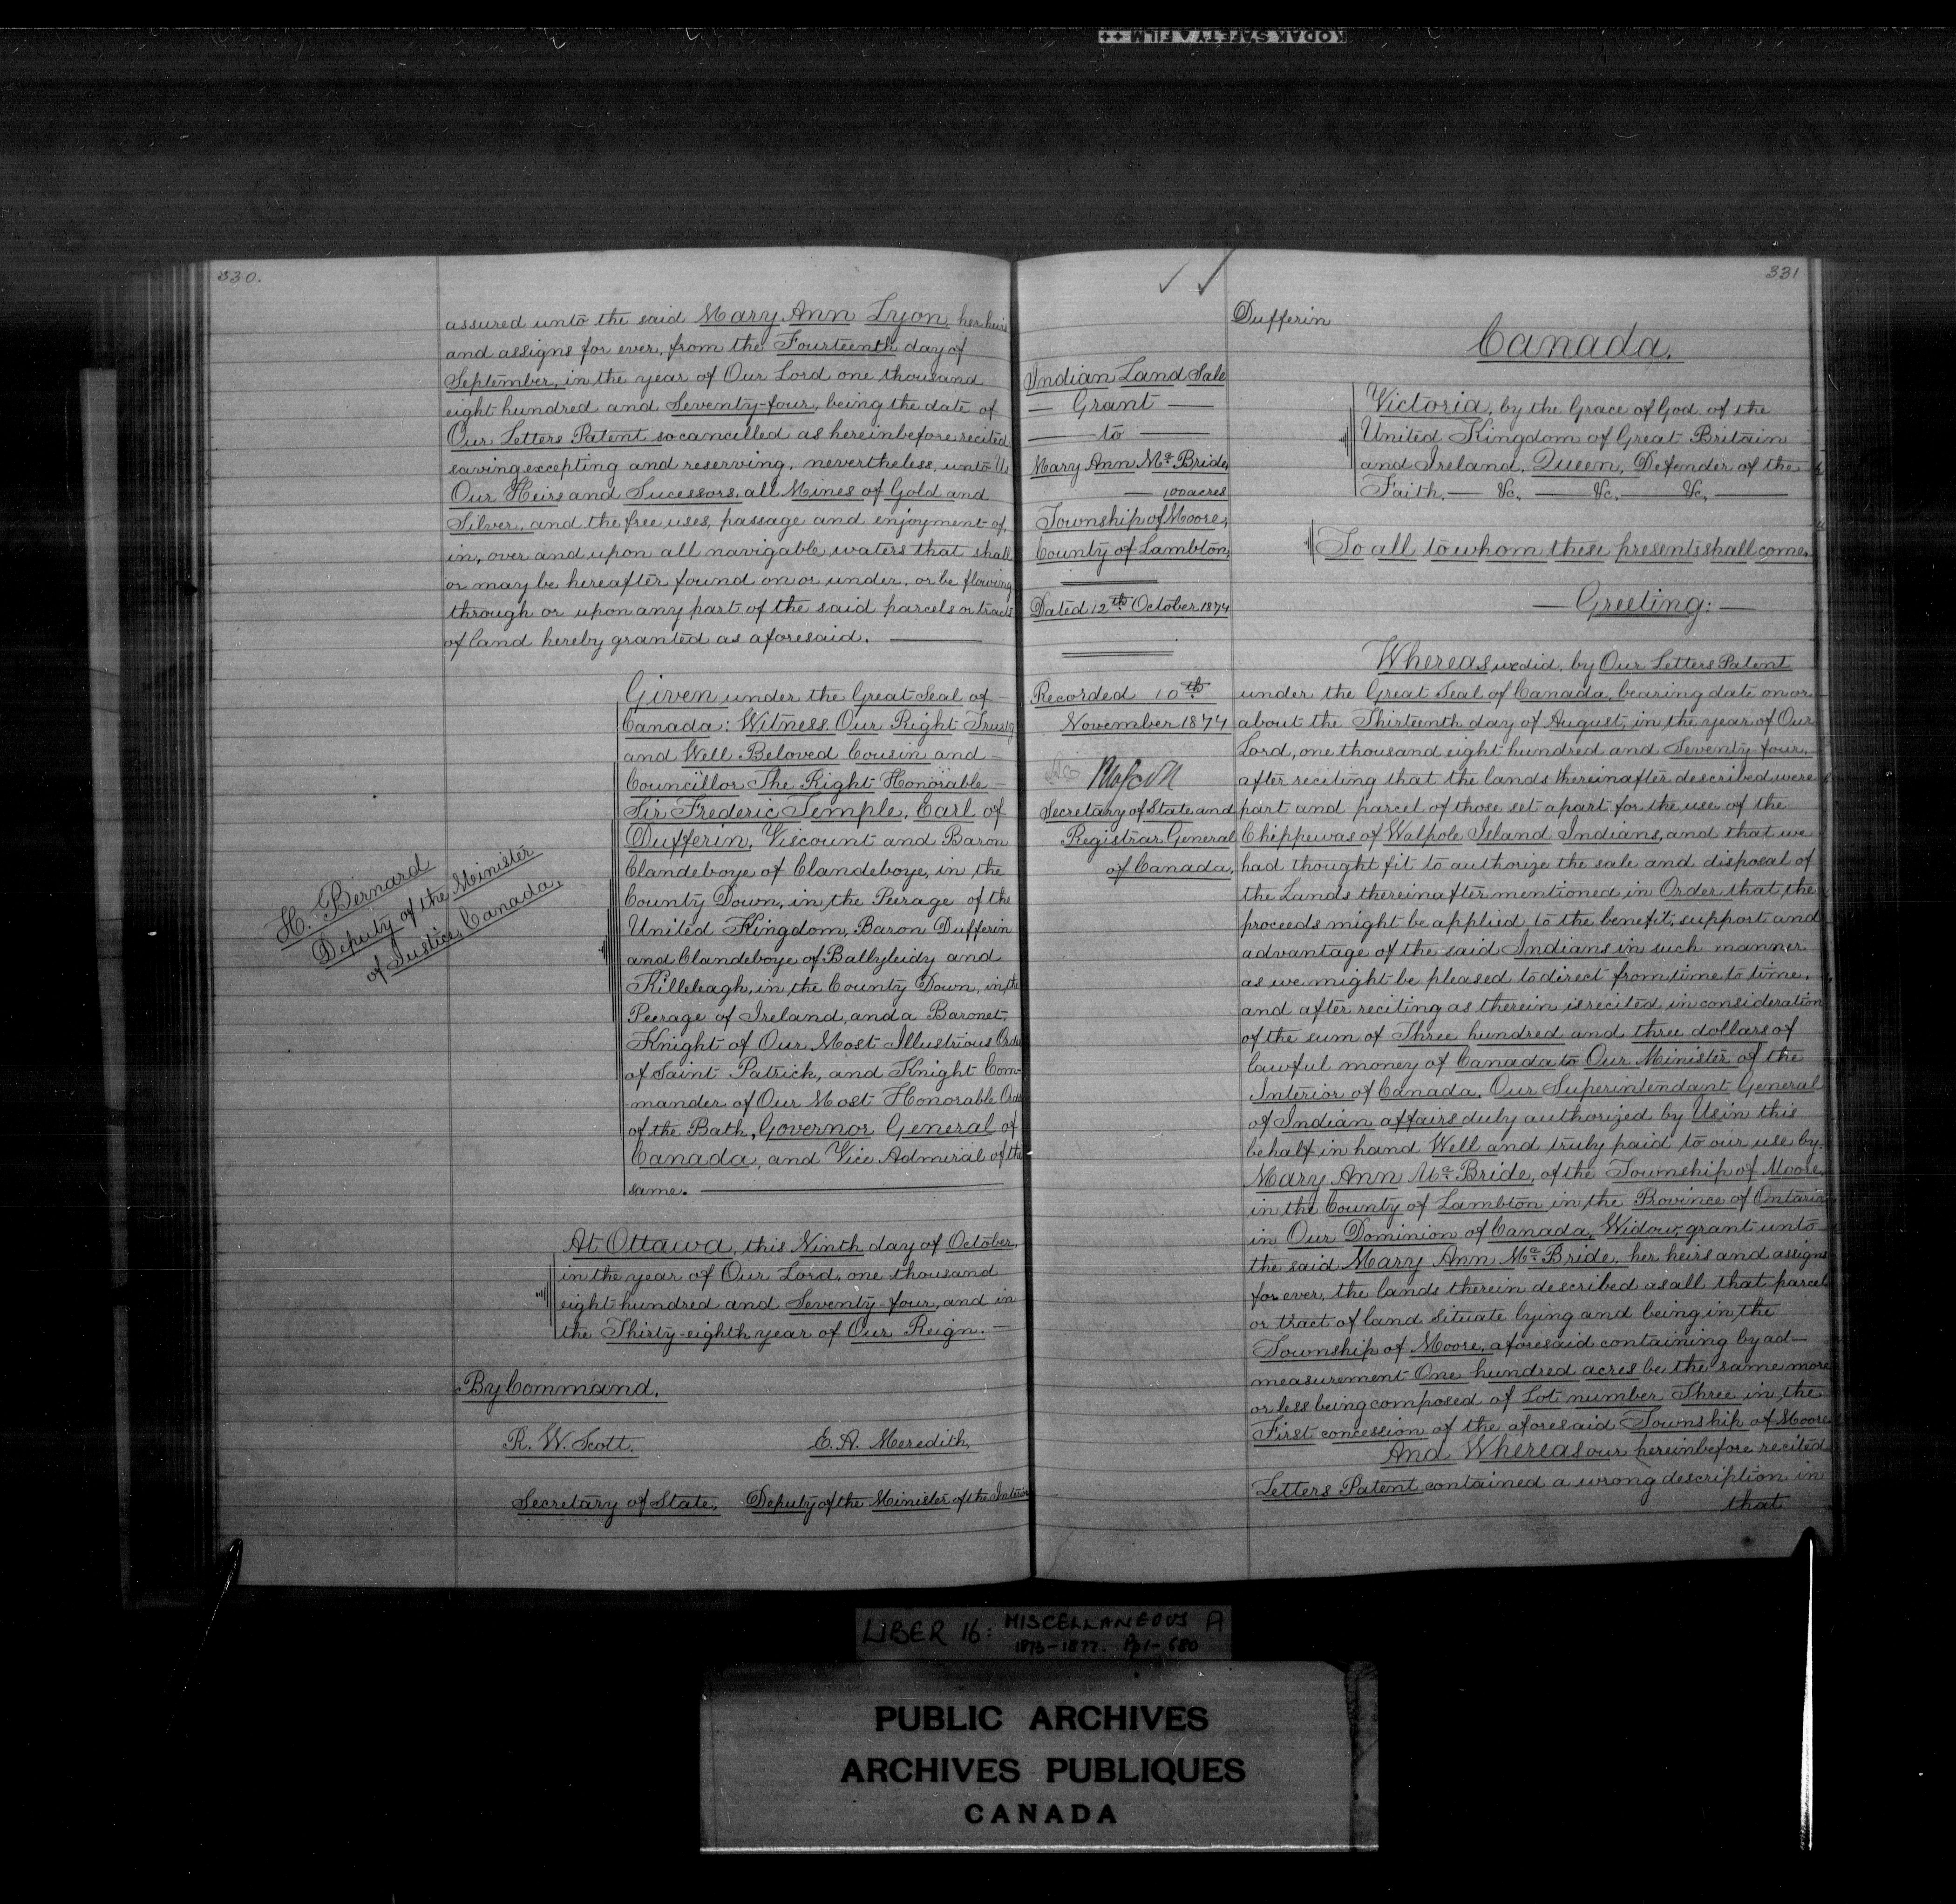 KODAK SAFETY FILM ++
330.
assured unto the said Mary Ann Lyon, her heirs
and assigns for ever, from the Fourteenth day of
September, in the year of Our Lord one thousand
eight hundred and Seventy-four, being the date of
Our Letters Patent so cancelled as hereinbefore recited
saving excepting and reserving, nevertheless, unto Us
Our Heirs and Sucessors, all Mines of Gold and
Silver, and the free uses, passage and enjoyment of,
in, over and upon all navigable waters that shall
or may be hereafter found on or under, or be flowing
through or upon any part of the said parcels or tracts
of land hereby granted as aforesaid.
Given under the Great Seal of
Canada: Witness, Our Right Trusty
and Well Beloved Cousin and
Councillor The Right Honorable
Sir Frederic Temple, Earl of
Dufferin, Viscount and Baron
Clandeboye of Clandeboye, in the
County Down, in the Peerage of the
United Kingdom, Baron Dufferin
and Clandeboye of Ballyleidy and
Killeleagh, in the County Down, in the
Peerage of Ireland, and a Baronet,
Knight of Our Most Illustrious Order
of Saint Patrick, and Knight Com-
mander of Our Most Honorable Order
of the Bath, Governor General of
Canada, and Vice Admiral of the
same.
H. Bernard
Deputy of the Minister
of Justice, Canada,
At Ottawa, this Ninth day of October,
in the year of Our Lord, one thousand
eight hundred and Seventy-four, and in
the Thirty-eighth year of Our Reign.
By Command,
R. W. Scott. E. A. Meredith,
Secretary of State, Deputy of the Minister of the Interior
331
Dufferin
Canada.
Indian Land Sale
— Grant —
— to —
Mary Ann Mc Bride,
— 100 acres
Township of Moore,
County of Lambton,
Dated 12th October 1874
Recorded 10th
November 1874
Secretary of State and
Registrar General
of Canada,
Victoria, by the Grace of God, of the
United Kingdom of Great Britain
and Ireland, Queen, Defender of the
Faith, — &c, — &c, — &c, —
To all to whom these presents shall come,
— Greeting: —
Whereas we did, by Our Letters Patent
under the Great Seal of Canada, bearing date on or
about the Thirteenth day of August, in the year of Our
Lord, one thousand eight hundred and Seventy four,
after reciting that the lands thereinafter described were
part and parcel of those set apart for the use of the
Chippewas of Walpole Island Indians, and that we
had thought fit to authorize the sale and disposal of
the Lands thereinafter mentioned in Order that, the
proceeds might be applied to the benefit, support and
advantage of the said Indians in such manner
as we might be pleased to direct from time to time,
and after reciting as therein is recited in consideration
of the sum of Three hundred and three dollars of
lawful money of Canada to Our Minister of the
Interior of Canada, Our Superintendant General
of Indian affairs duly authorized by Us in this
behalf in hand Well and truly paid to our use by
Mary Ann Mc Bride, of the Township of Moore,
in the County of Lambton in the Province of Ontario
in Our Dominion of Canada, Widow, grant unto
the said Mary Ann Mc Bride, her heirs and assigns
for ever, the lands therein described as all that parcel
or tract of land situate lying and being in, the
Township of Moore, aforesaid containing by ad—
measurement One hundred acres be the same more
or less being composed of Lot number Three in the
First concession of the aforesaid Township of Moore
And Whereas our hereinbefore recited
Letters Patent contained a wrong description in
that
LIBER 16: MISCELLANEOUS A
1873-1877. Pp1-680
PUBLIC ARCHIVES
ARCHIVES PUBLIQUES
CANADA